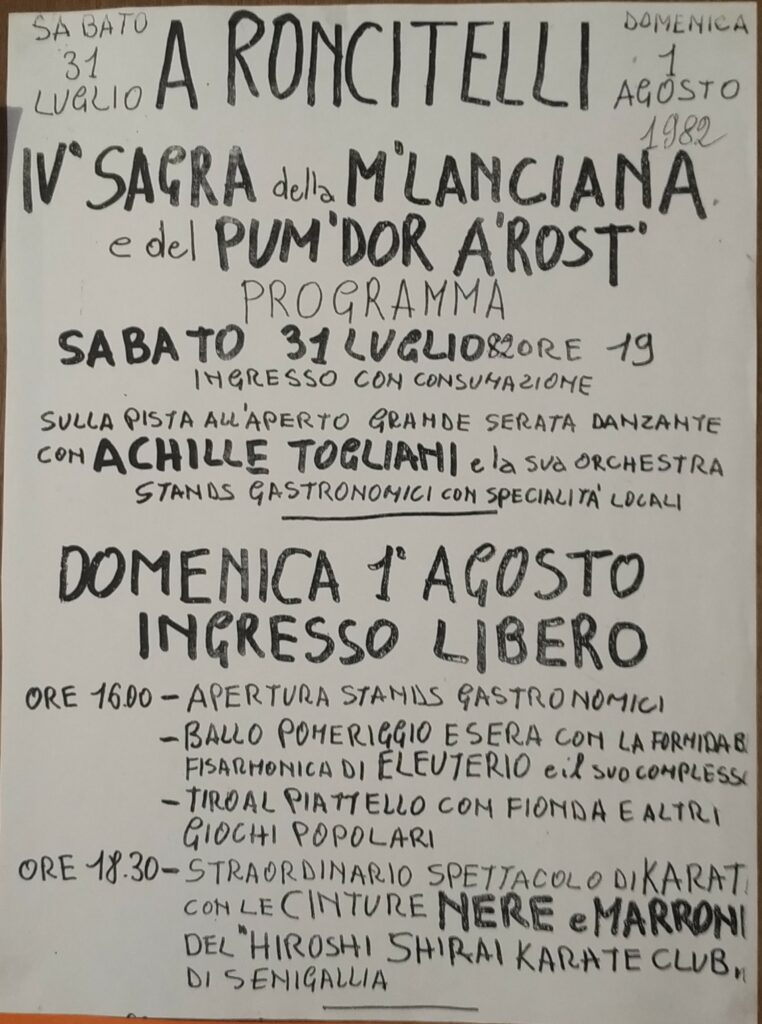 SABATO
31
LUGLIO
A RONCITELLI
DOMENICA
1
AGOSTO
1982
IV° SAGRA della M'LANCIANA
e del PUM'DOR A'ROST'
PROGRAMMA
SABATO 31 LUGLIO 82 ORE 19
INGRESSO CON CONSUMAZIONE
SULLA PISTA ALL'APERTO GRANDE SERATA DANZANTE
CON ACHILLE TOGLIANI e la sua ORCHESTRA
STANDS GASTRONOMICI CON SPECIALITA' LOCALI
DOMENICA 1° AGOSTO
INGRESSO LIBERO
ORE 16.00 - APERTURA STANDS GASTRONOMICI
- BALLO POMERIGGIO E SERA CON LA FORMIDAB
FISARMONICA DI ELEUTERIO e il SUO COMPLESSO
- TIRO AL PIATTELLO CON FIONDA E ALTRI
GIOCHI POPOLARI
ORE 18.30 - STRAORDINARIO SPETTACOLO DI KARAT
CON LE CINTURE NERE e MARRONI
DEL "HIROSHI SHIRAI KARATE CLUB"
DI SENIGALLIA